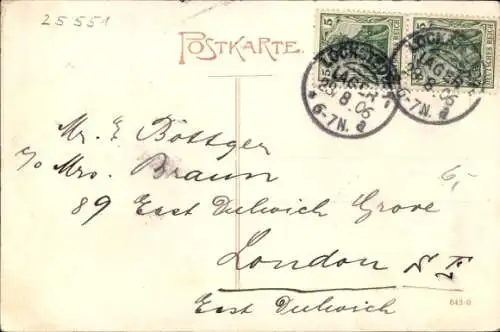 25551
POSTKARTE.
5 5
DEUTSCHES REICH
LOCKSTEDT
LAGER
23.8.06
* 6-7N. a
LOCKSTEDT
LAGER
8.06
6-7N. a
Mr. E. Böttger
c/o Mrs. Braun
6,-
89 East Dulwich Grove
London S.E.
East Dulwich
643-0